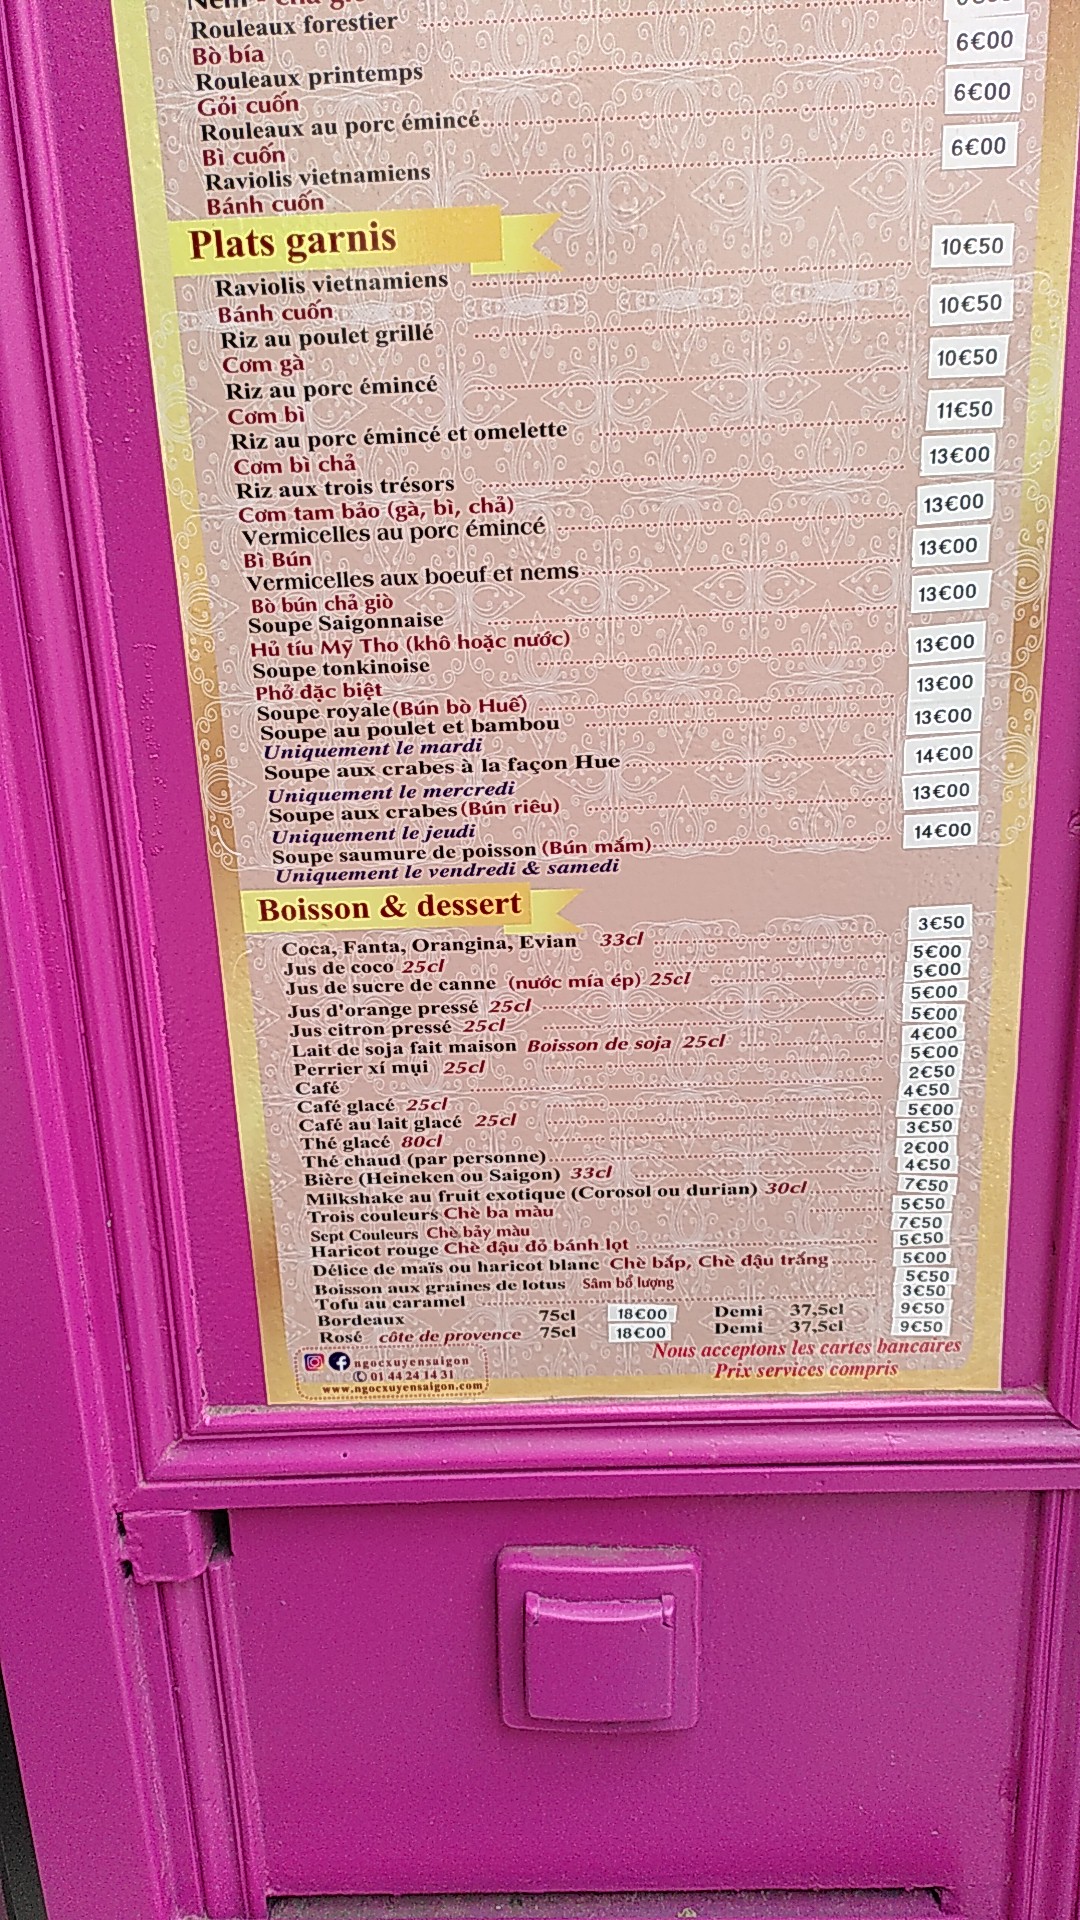 Rouleaux forestier
Bò bía 6€00
Rouleaux printemps
Gỏi cuốn 6€00
Rouleaux au porc émincé
Bì cuốn 6€00
Raviolis vietnamiens
Bánh cuốn
Plats garnis
Raviolis vietnamiens 10€50
Bánh cuốn
Riz au poulet grillé 10€50
Cơm gà
Riz au porc émincé 10€50
Cơm bì
Riz au porc émincé et omelette 11€50
Cơm bì chả
Riz aux trois trésors 13€00
Cơm tam bảo (gà, bì, chả)
Vermicelles au porc émincé 13€00
Bì Bún
Vermicelles aux boeuf et nems 13€00
Bò bún chả giò
Soupe Saigonnaise 13€00
Hủ tíu Mỹ Tho (khô hoặc nước)
Soupe tonkinoise 13€00
Phở đặc biệt
Soupe royale (Bún bò Huế) 13€00
Soupe au poulet et bambou 13€00
Uniquement le mardi
Soupe aux crabes à la façon Hue 14€00
Uniquement le mercredi
Soupe aux crabes (Bún riêu) 13€00
Uniquement le jeudi
Soupe saumure de poisson (Bún mắm) 14€00
Uniquement le vendredi & samedi
Boisson & dessert
Coca, Fanta, Orangina, Evian 33cl 3€50
Jus de coco 25cl 5€00
Jus de sucre de canne (nước mía ép) 25cl 5€00
Jus d'orange pressé 25cl 5€00
Jus citron pressé 25cl 5€00
Lait de soja fait maison Boisson de soja 25cl 4€00
Perrier xí muị 25cl 5€00
Café 2€50
Café glacé 25cl 4€50
Café au lait glacé 25cl 5€00
Thé glacé 80cl 3€50
Thé chaud (par personne) 2€00
Bière (Heineken ou Saigon) 33cl 4€50
Milkshake au fruit exotique (Corosol ou durian) 30cl 7€50
Trois couleurs Chè ba màu 5€50
Sept Couleurs Chè bảy màu 7€50
Haricot rouge Chè đậu đỏ bánh lọt 5€50
Délice de maïs ou haricot blanc Chè bắp, Chè đậu trắng 5€00
Boisson aux graines de lotus Sâm bổ lượng 5€50
Tofu au caramel 3€50
Bordeaux 75cl 18€00 Demi 37,5cl 9€50
Rosé côte de provence 75cl 18€00 Demi 37,5cl 9€50
Nous acceptons les cartes bancaires
Prix services compris
ngocxuyensaigon
01 44 24 14 31
www.ngocxuyensaigon.com